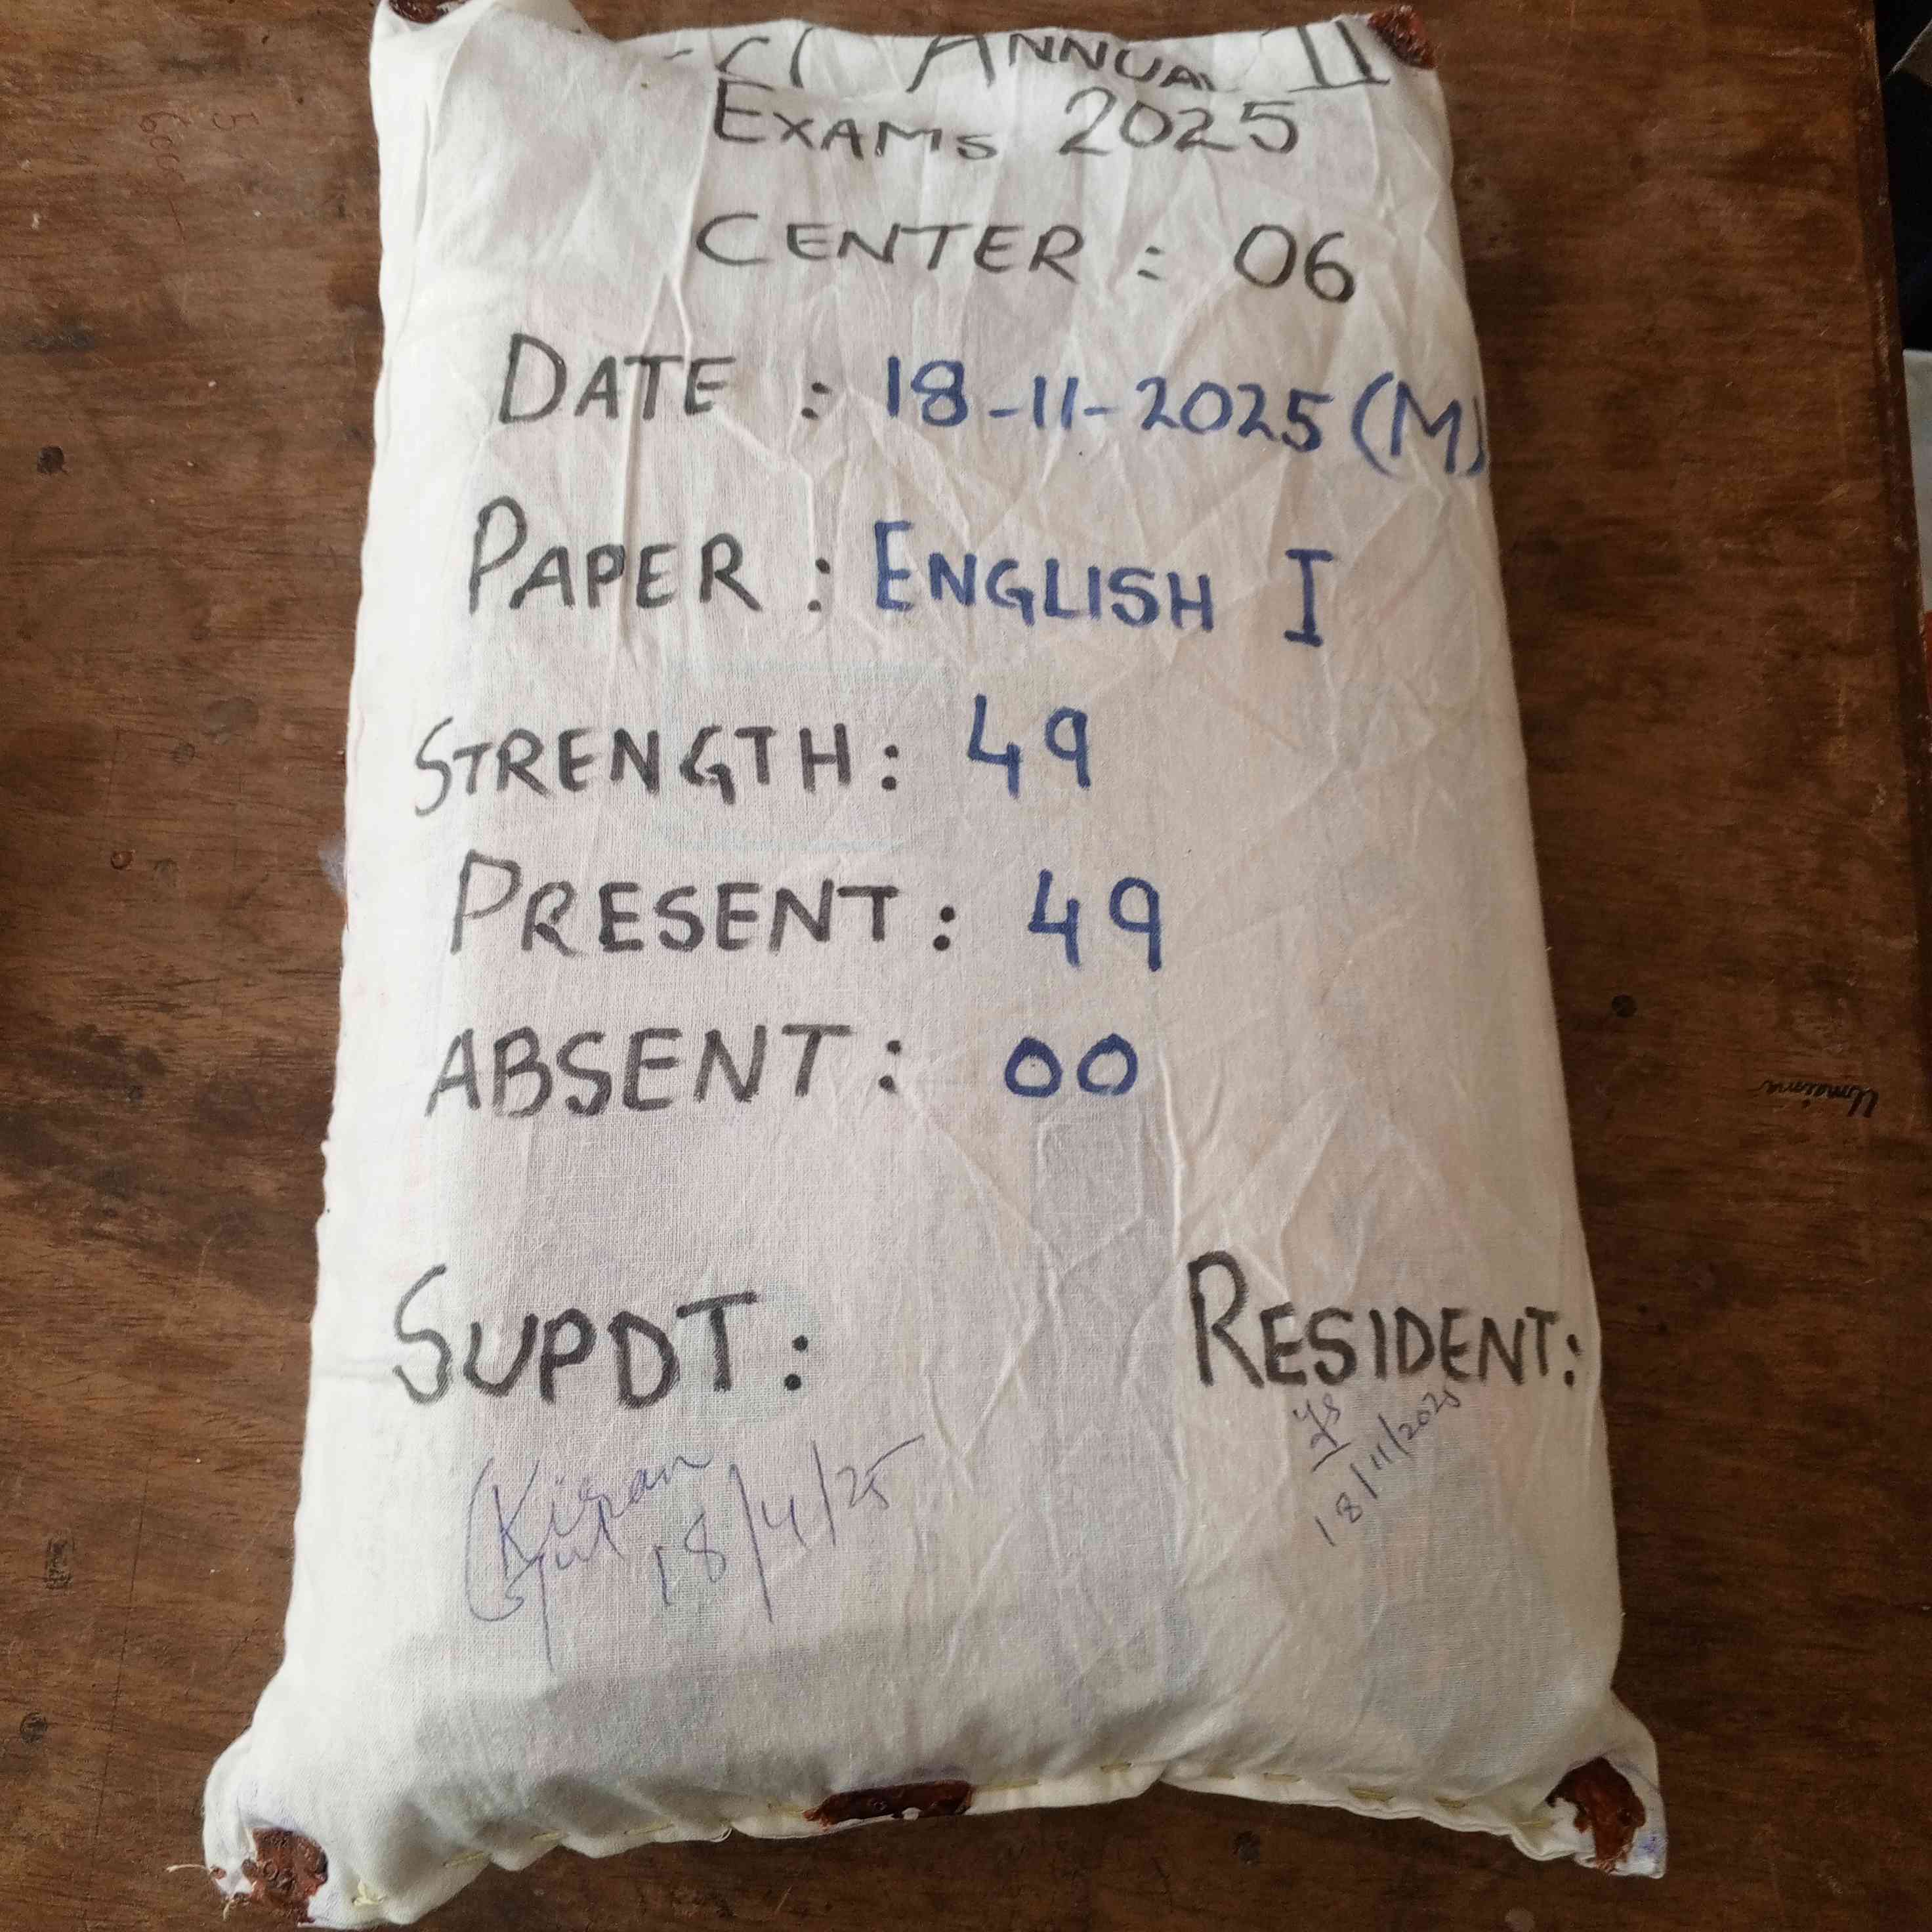 ANNUAL II
EXAMS 2025
CENTER : 06
DATE : 18-11-2025 (M)
PAPER : ENGLISH I
STRENGTH : 49
PRESENT : 49
ABSENT : 00
SUPDT : RESIDENT :
Kiran
Gul 18/11/25
18/11/2025
Umaima